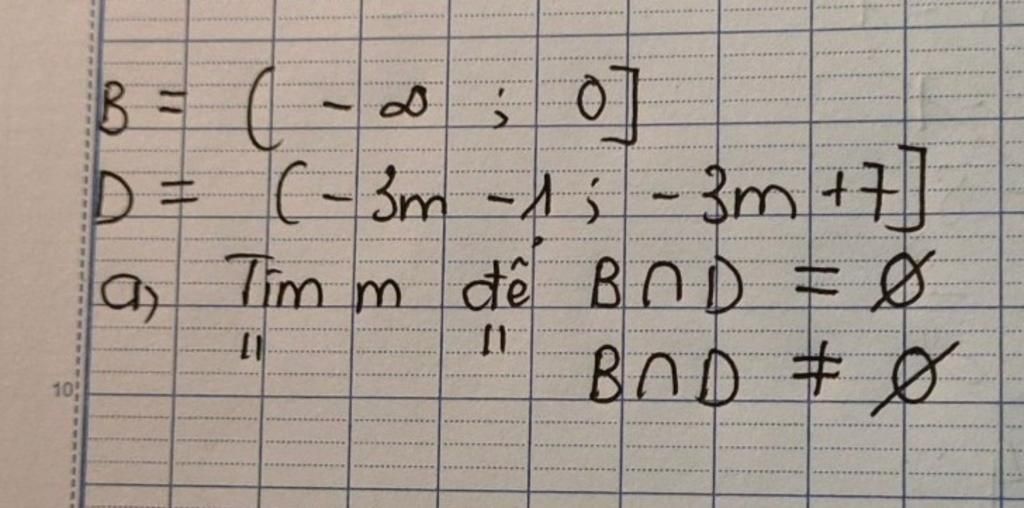 B = (-∞ ; 0]
D = (-3m -1 ; -3m +7]
a, Tìm m để B∩D = ∅
" " B∩D ≠ ∅
10